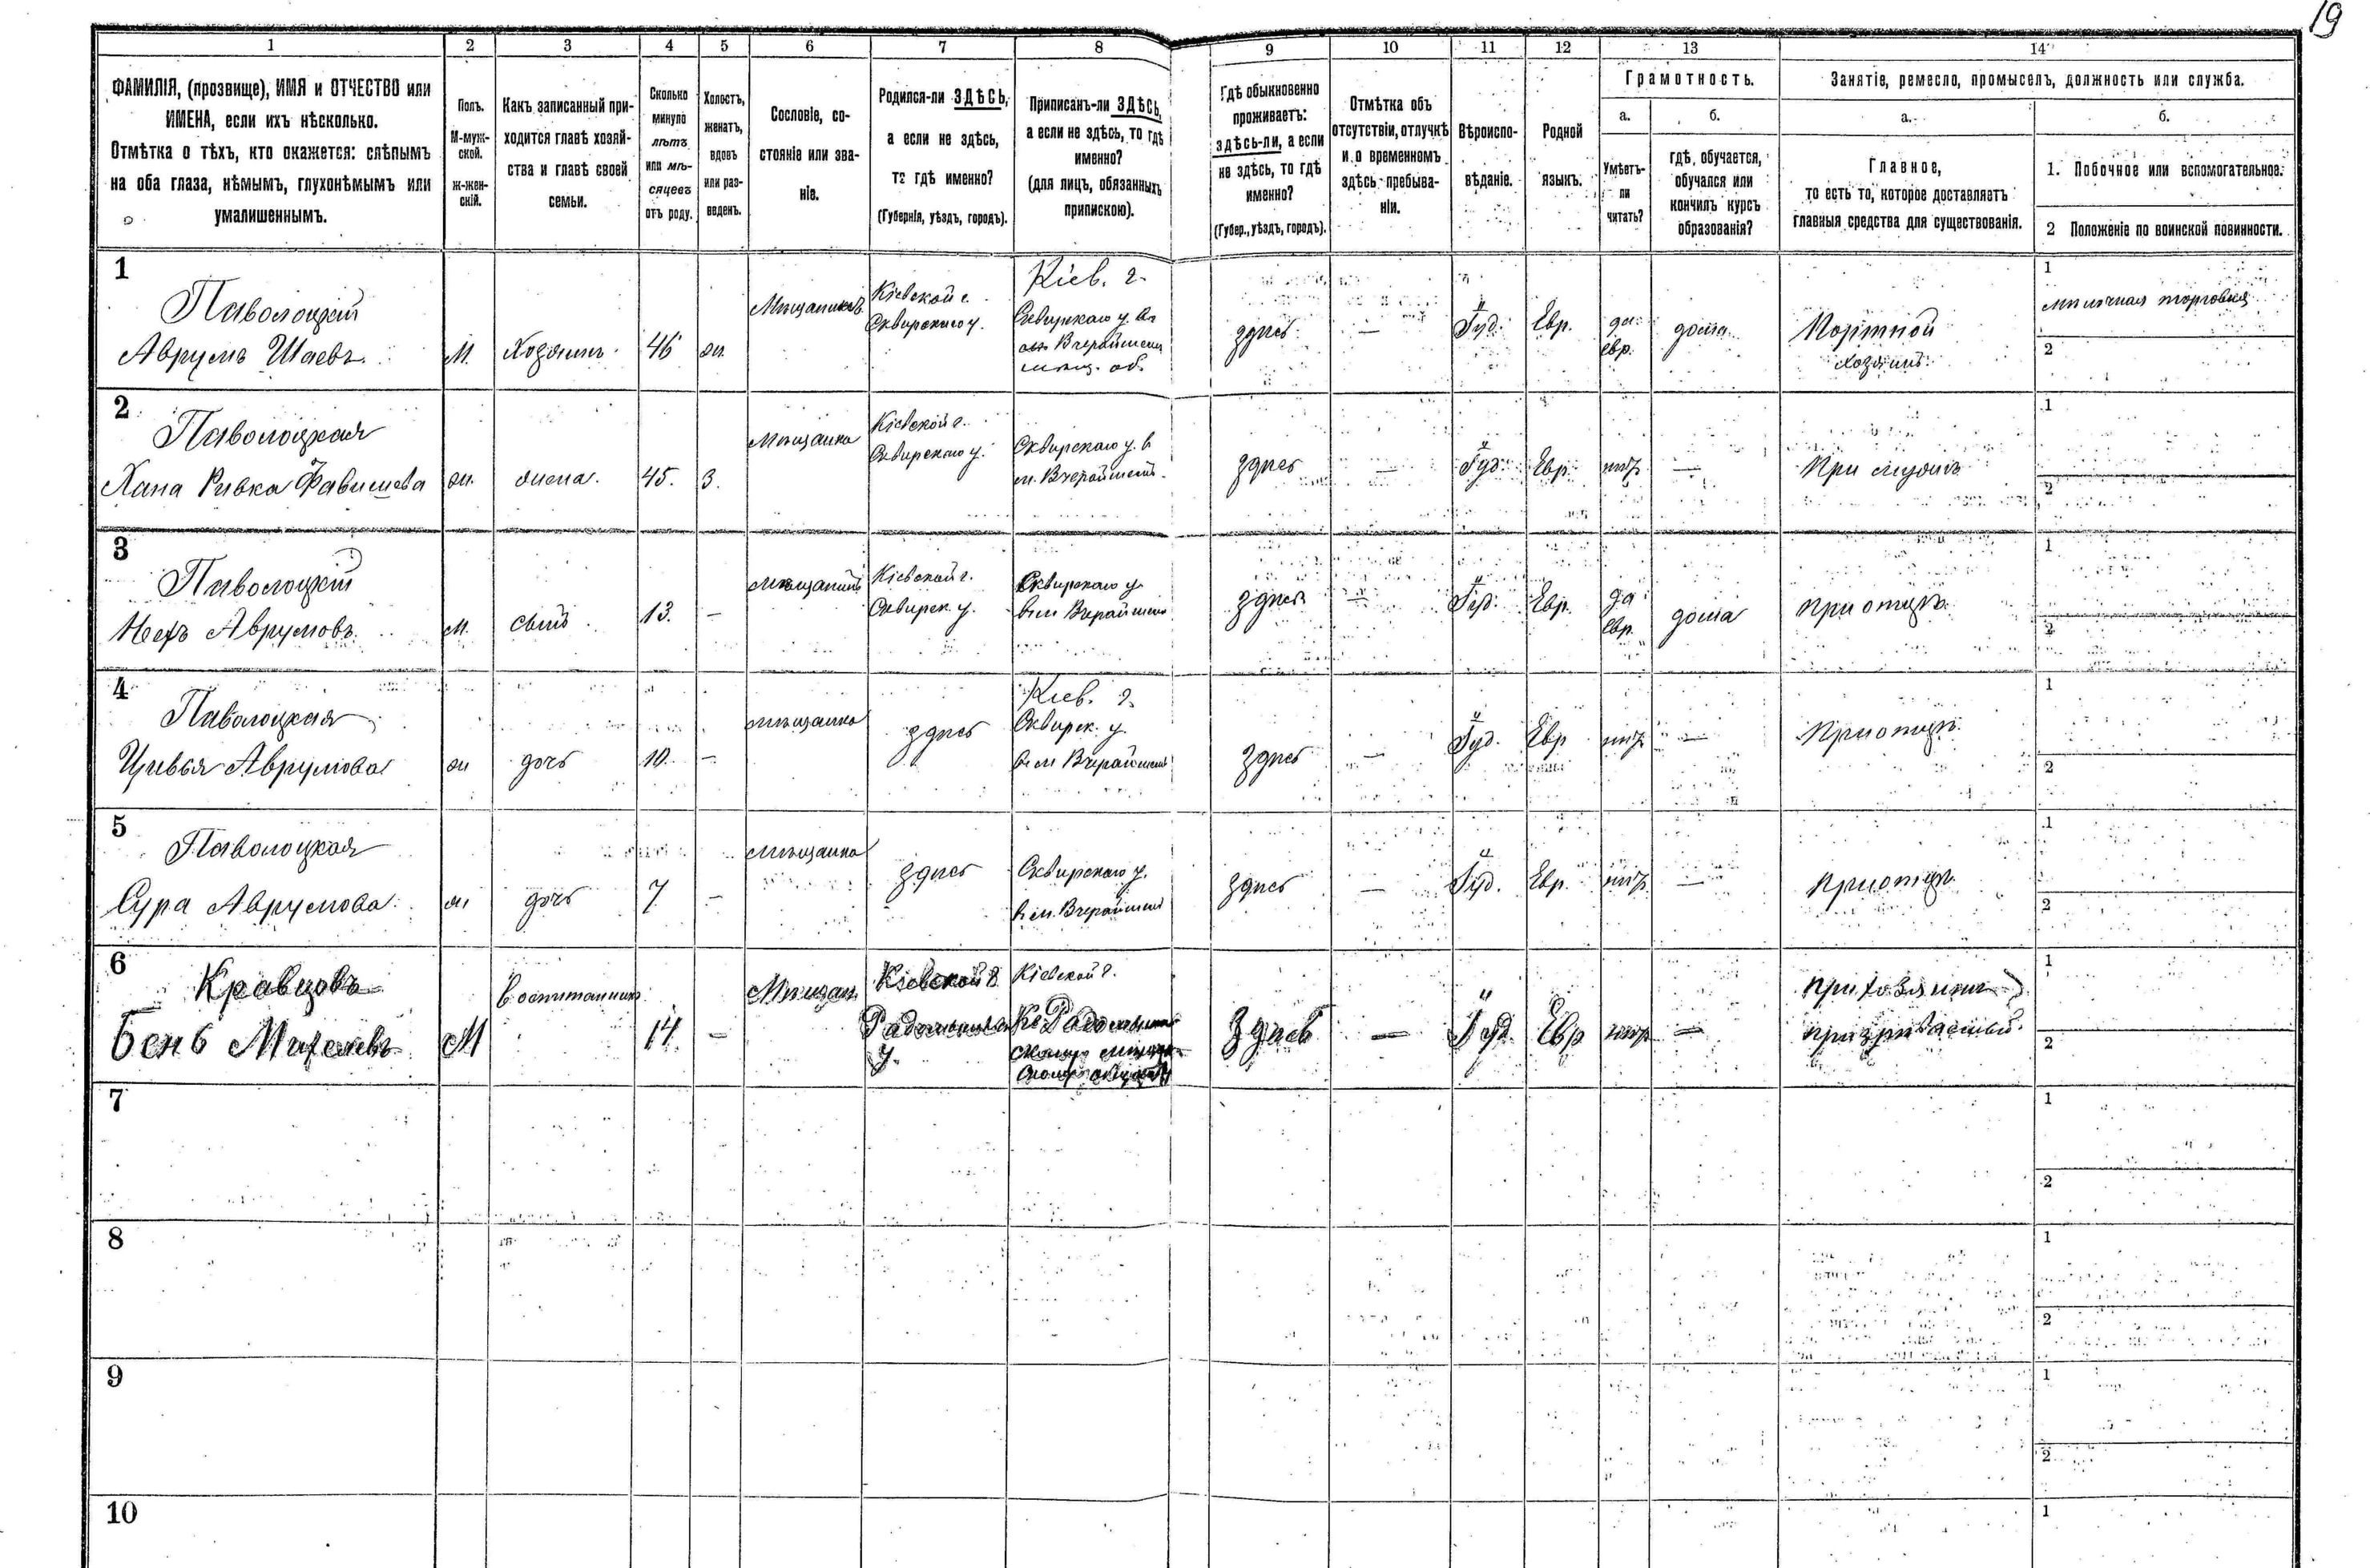 19
1 2 3 4 5 6 7 8 9 10 11 12 13 14
ФАМИЛІЯ, (прозвище), ИМЯ и ОТЧЕСТВО или
ИМЕНА, если ихъ нѣсколько.
Отмѣтка о тѣхъ, кто окажется: слѣпымъ
на оба глаза, нѣмымъ, глухонѣмымъ или
умалишеннымъ.
Полъ.
М-муж-
ской.
ж-жен-
скій.
Какъ записанный при-
ходится главѣ хозяй-
ства и главѣ своей
семьи.
Сколько
минуло
лѣтъ
или мѣ-
сяцевъ
отъ роду.
Холостъ,
женатъ,
вдовъ
или раз-
веденъ.
Сословіе, со-
стояніе или зва-
ніе.
Родился-ли ЗДѢСЬ,
а если не здѣсь,
то гдѣ именно?
(Губернія, уѣздъ, городъ).
Приписанъ-ли ЗДѢСЬ,
а если не здѣсь, то гдѣ
именно?
(для лицъ, обязанныхъ
припискою).
Гдѣ обыкновенно
проживаетъ:
здѣсь-ли, а если
не здѣсь, то гдѣ
именно?
(Губер., уѣздъ, городъ).
Отмѣтка объ
отсутствіи, отлучкѣ
и о временномъ
здѣсь пребыва-
ніи.
Вѣроиспо-
вѣданіе.
Родной
языкъ.
Грамотность.
а.
Умѣетъ-
ли
читать?
б.
гдѣ, обучается,
обучался или
кончилъ курсъ
образованія?
Занятіе, ремесло, промыселъ, должность или служба.
а.
Главное,
то есть то, которое доставляетъ
главныя средства для существованія.
б.
1. Побочное или вспомогательное.
2 Положеніе по воинской повинности.
1
Паволоцкій
Аврумъ Шаевъ
М.
Хозяинъ
46
ж.
Мѣщанинъ
Кіевской г.
Сквирскаго у.
Кіев. г.
Сквирскаго у. въ
м. Вчерайшемъ
мѣщ. об.
здѣсь
—
Іуд.
Евр.
да
евр.
дома
Портной
хозяинъ
1
мелочная торговля
2
2
Паволоцкая
Хана Ривка Фавишева
ж.
жена.
45.
З.
Мѣщанка
Кіевской г.
Сквирскаго у.
Сквирскаго у. в
м. Вчерайшемъ
здѣсь
—
Іуд.
Евр.
нѣтъ
—
При мужѣ
1
2
3
Паволоцкій
Аврумовъ
М.
сынъ
13.
—
мѣщанинъ
Кіевской г.
Сквирск. у.
Сквирскаго у.
в м Вчерайшемъ
здѣсь
—
Іуд.
Евр.
да
евр.
дома
При отцѣ
1
2
4
Паволоцкая
Цивья Аврумова
ж
дочь
10.
—
мѣщанка
здѣсь
Кіев. г.
Сквирск. у.
в м Вчерайшемъ
здѣсь
—
Іуд.
Евр
нѣтъ
—
При отцѣ
1
2
5
Паволоцкая
Сура Аврумова
ж
дочь
7
—
мѣщанка
здѣсь
Сквирскаго у.
в м. Вчерайшемъ
здѣсь
—
Іуд.
Евр.
нѣтъ
—
При отцѣ
1
2
6
Кравцовъ
Бень
М
воспитанникъ
14
—
Мѣщан.
Кіевской г
у.
Кіевской г.
Здѣсь
—
Іуд.
Евр
нѣтъ
—
При хозяинѣ
призрѣваемый.
1
2
7
1
2
8
1
2
9
1
2
10
1